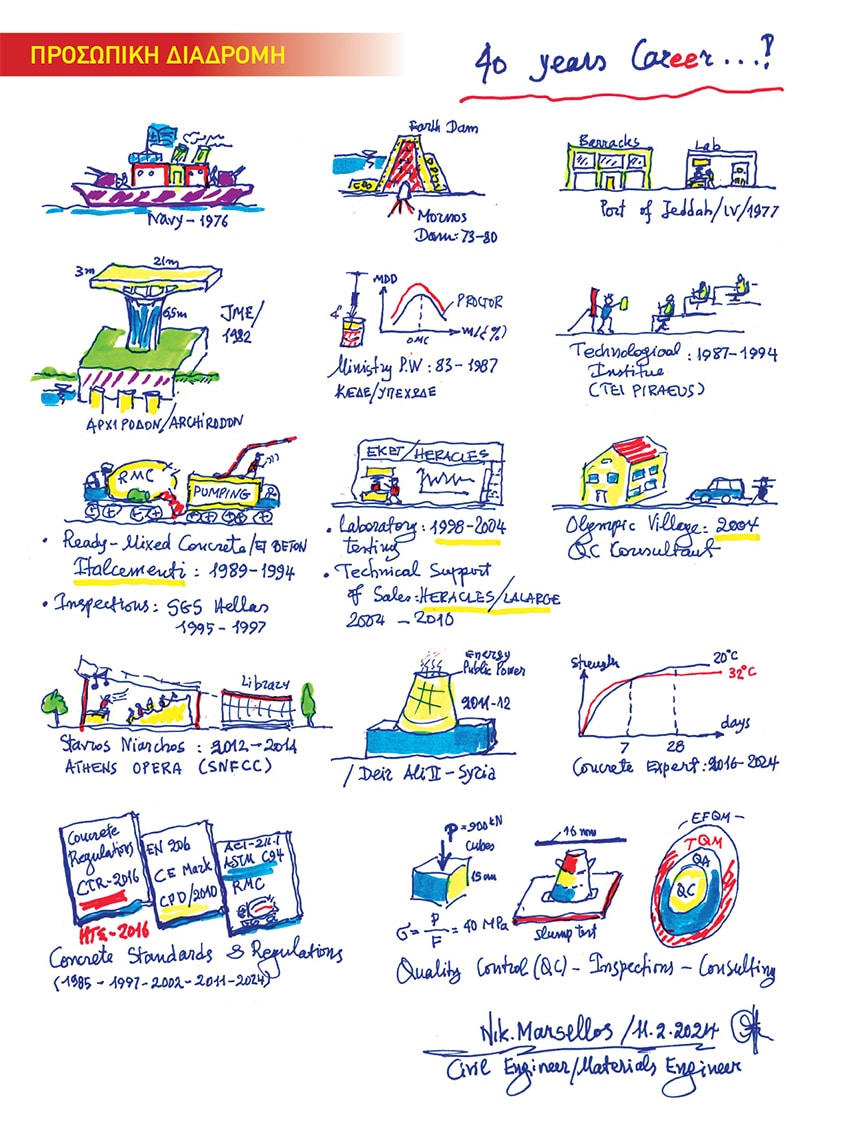 ΠΡΟΣΩΠΙΚΗ ΔΙΑΔΡΟΜΗ
40 years Career...!
Navy - 1976
Earth Dam
Mornos
Dam: 73-80
Barracks
Lab
Port of Jeddah/IV/1977
3m
21m
6,5m
JME/
1982
ΑΡΧΙΡΟΔΟΝ/ARCHIRODON
4"
MDD
PROCTOR
OMC
m/c(%)
Ministry P.W : 83-1987
ΚΕΔΕ/ΥΠΕΧΩΔΕ
Technological : 1987-1994
Institue
(TEI PIRAEUS)
RMC
PUMPING
• Ready-Mixed Concrete/ET BETON
Italcementi : 1989-1994
• Inspections: SGS Hellas
1995-1997
EKET/HERACLES
• Laboratory: 1998-2004
testing
• Technical Support
of Sales: HERACLES/LALARGE
2004 - 2010
Olympic Village: 2004
QC Konsultant
Library
Stavros Niarchos : 2012-2014
ATHENS OPERA (SNFCC)
Energy
Public Power
2011-12
/Deir Ali II - Syria
Strength
20°C
32°C
days
7
28
Concrete Expert: 2016-2024
Concrete
Regulations
CTR-2016
ΚΤΣ-2016
EN 206
CE Mark
CPD/2010
ACI-211.1
ASTM C94
RMC
Concrete Standards & Regulations
(1985-1997-2002-2011-2024)
P=900kN
Cubes
15cm
σ = P/F = 40 MPa
16 mm
Slump test
EFQM
TQM
QA
QC
Quality Control (QC) - Inspections - Consulting
Nik. Marsellos /11.2.2024
Civil Engineer/Materials Engineer